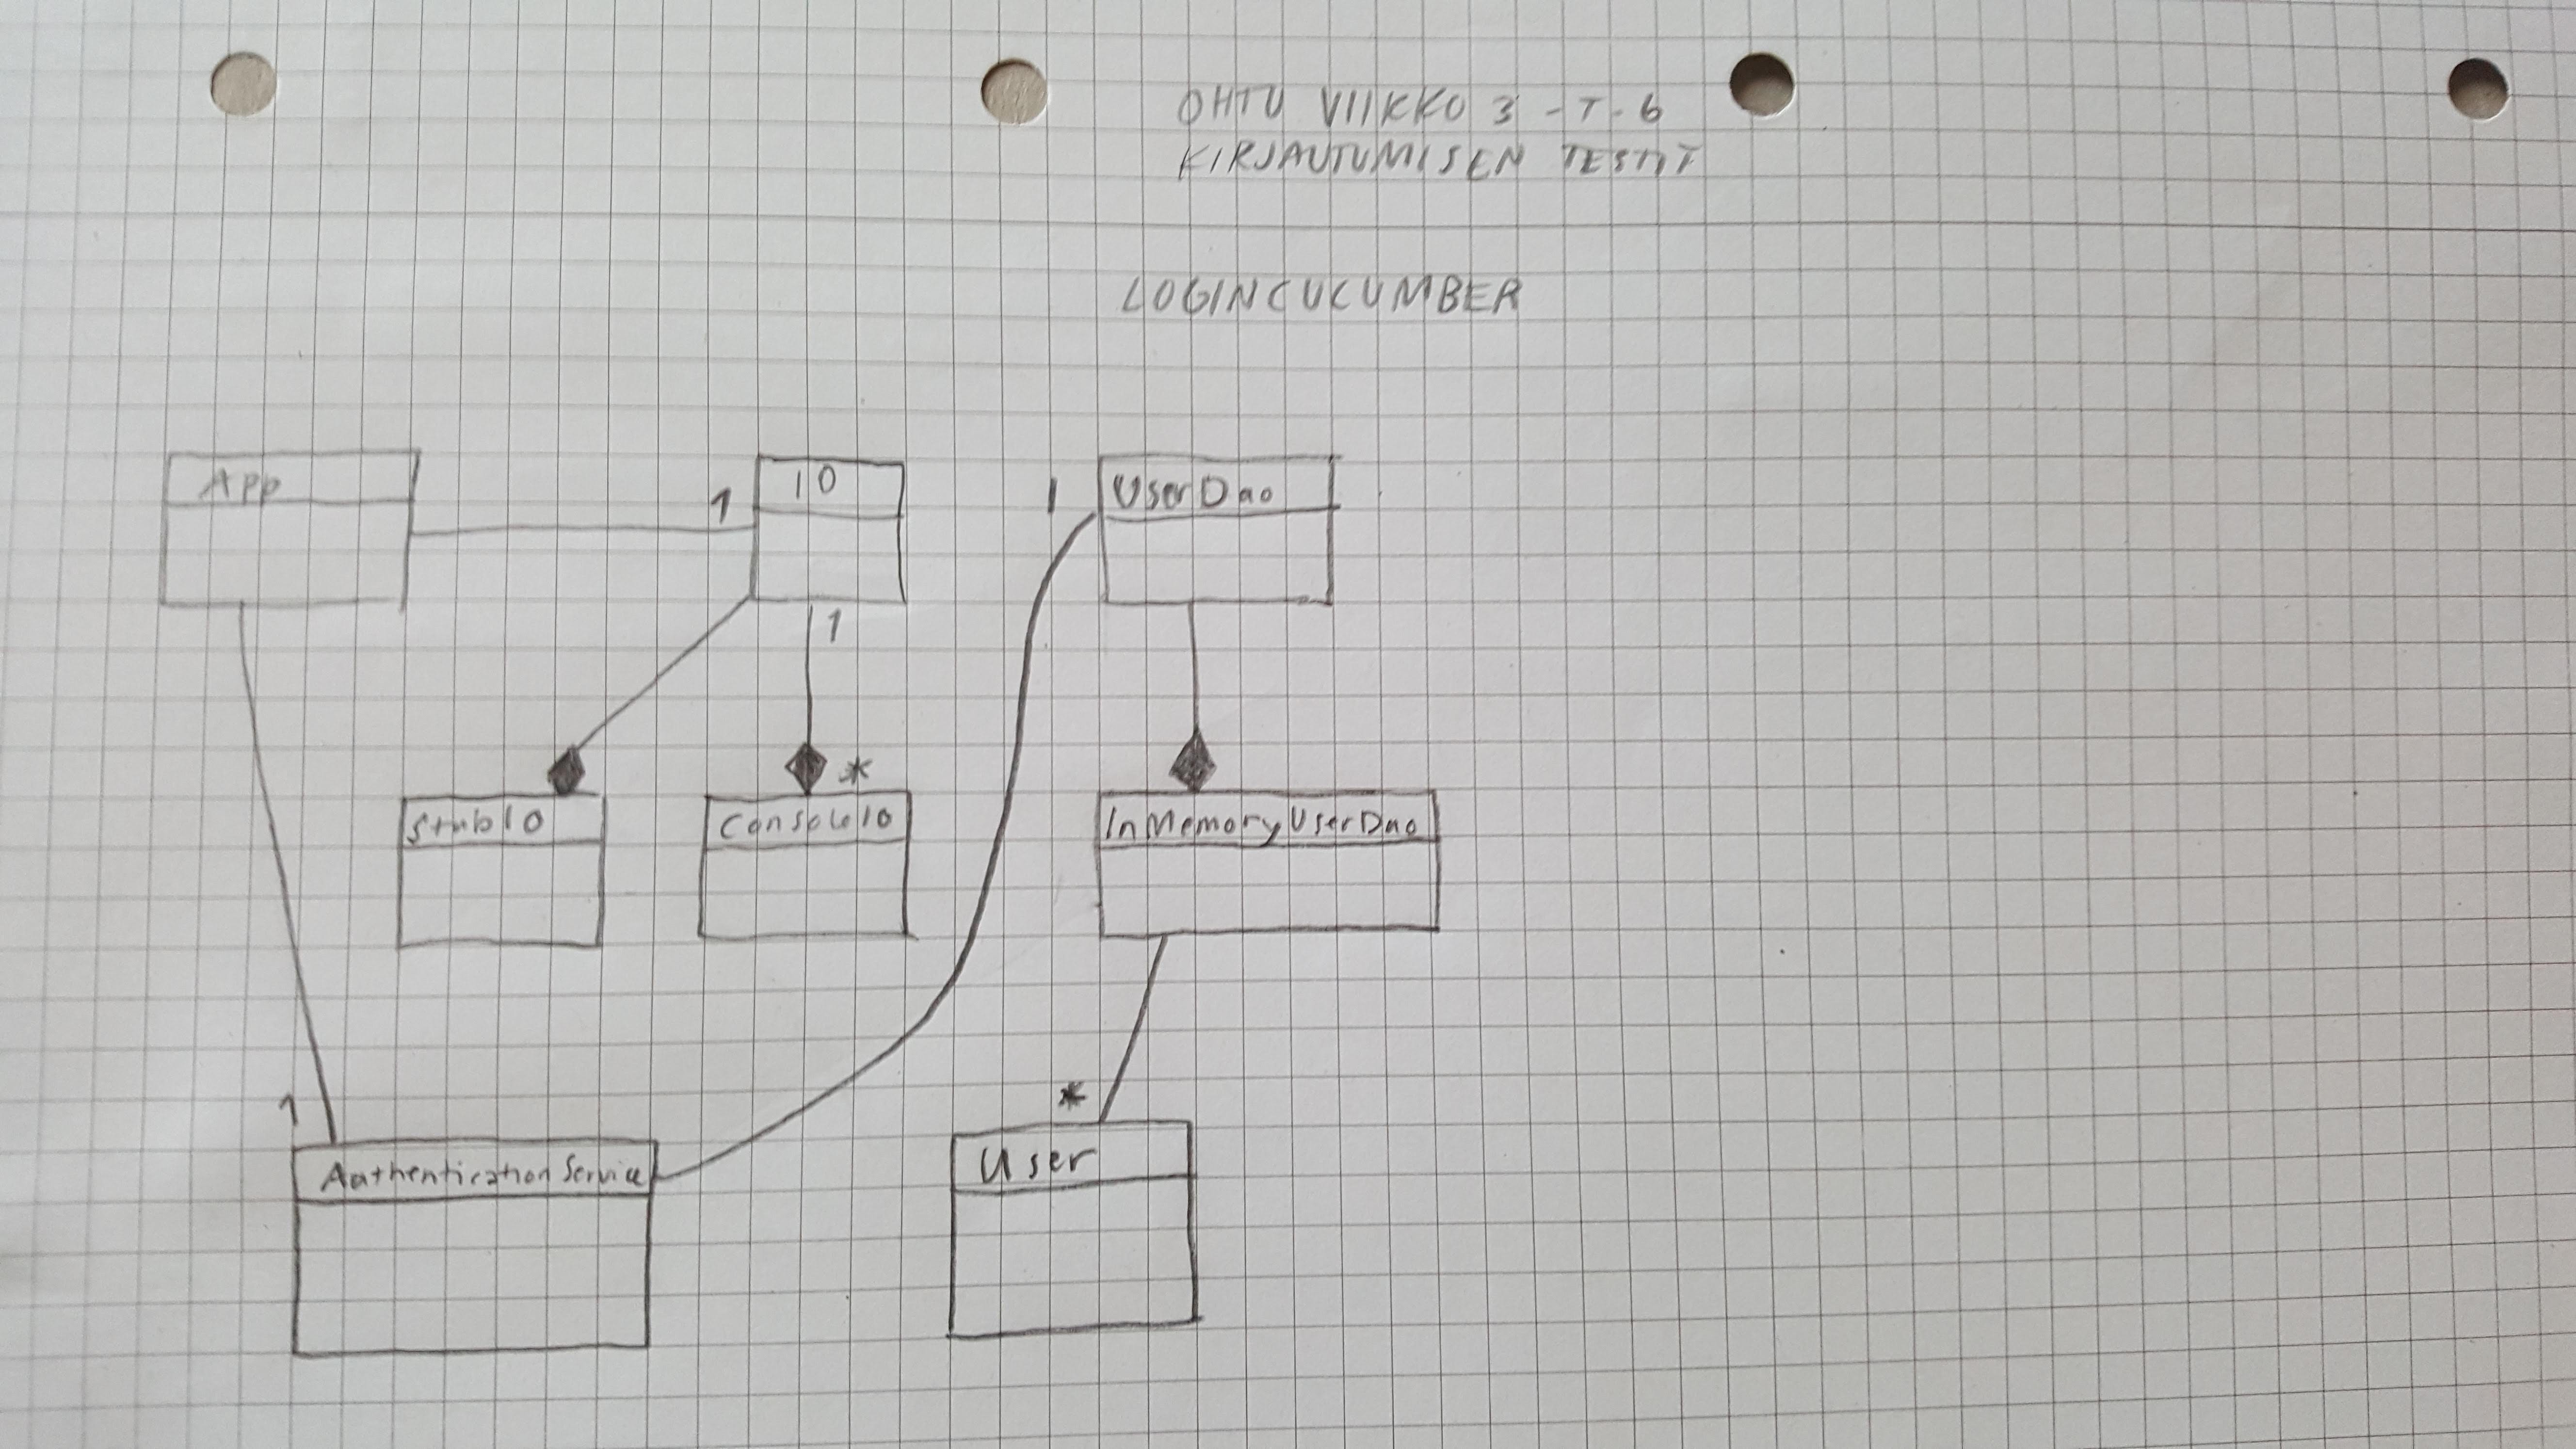 OHTU VIIKKO 3 - T. 6
KIRJAUTUMISEN TESTIT
LOGINCUCUMBER
App
1
IO
1
UserDao
1
*
StubIO
ConsoleIO
InMemoryUserDao
1
*
AuthenticationService
User